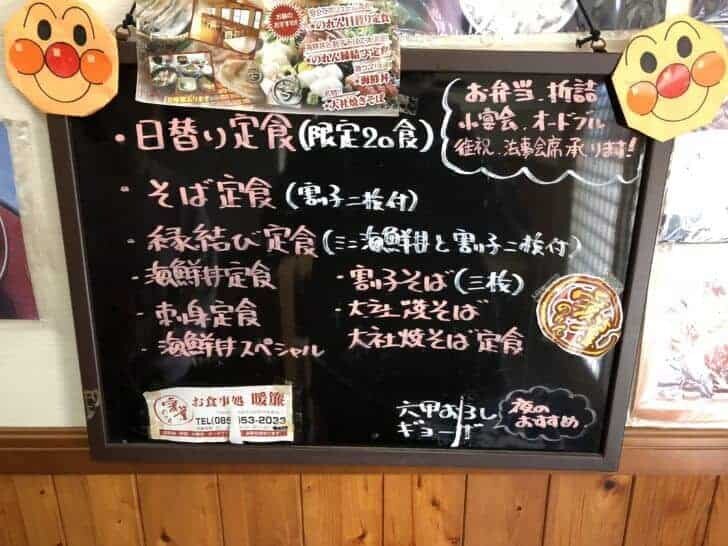 のれん日替り定食
のれん縁結び定食
海鮮丼
大社焼きそば
お弁当、折詰
小宴会、オードブル
法事会席承ります!
・日替り定食(限定20食)
・そば定食(割子二枚付)
・縁結び定食(ミニ海鮮丼と割り子二枚付)
・海鮮丼定食
・割子そば(三枚)
・刺身定食
・大社焼そば
・海鮮丼スペシャル
大社焼そば定食
お食事処 暖簾
六甲おろし
ギョーザ
夜の
おすすめ